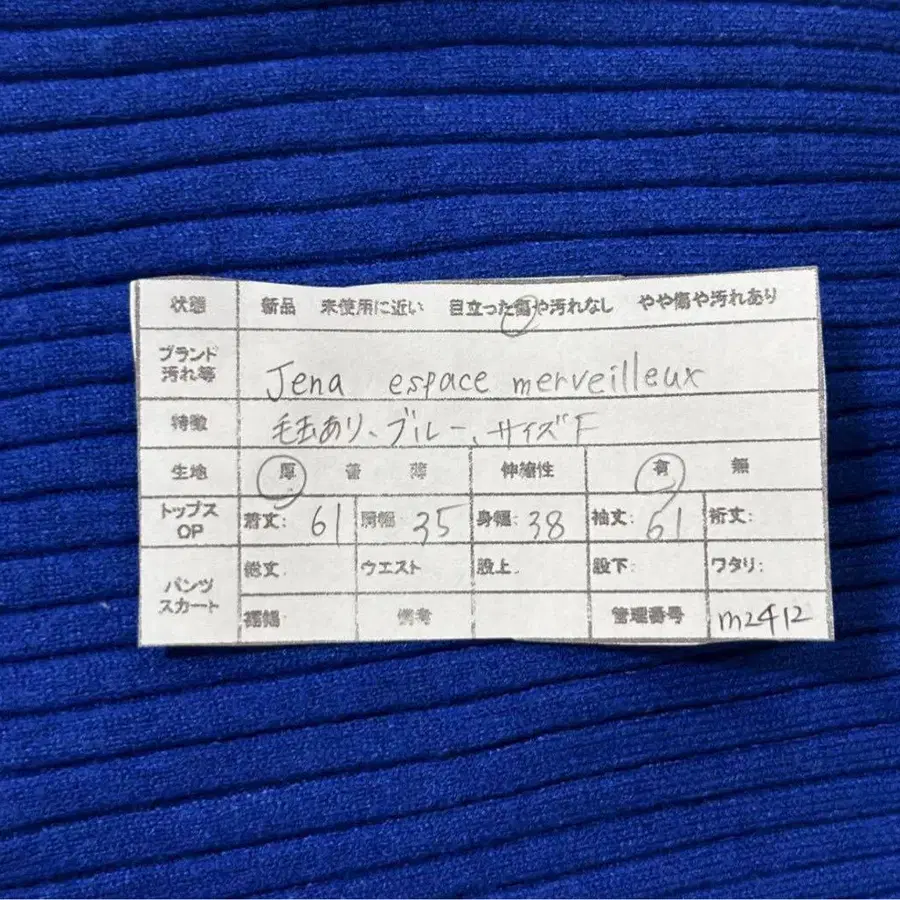 状態 新品 未使用に近い 目立った傷や汚れなし やや傷や汚れあり
ブランド
汚れ等 Jena espace merveilleux
特徴 毛玉あり、ブルー、サイズF
生地 厚 普 薄 伸縮性 有 無
トップス
OP 着丈: 61 肩幅: 35 身幅: 38 袖丈: 61 裄丈:
パンツ
スカート 総丈 ウエスト 股上. 股下: ワタリ:
裾幅 備考 管理番号 m2412